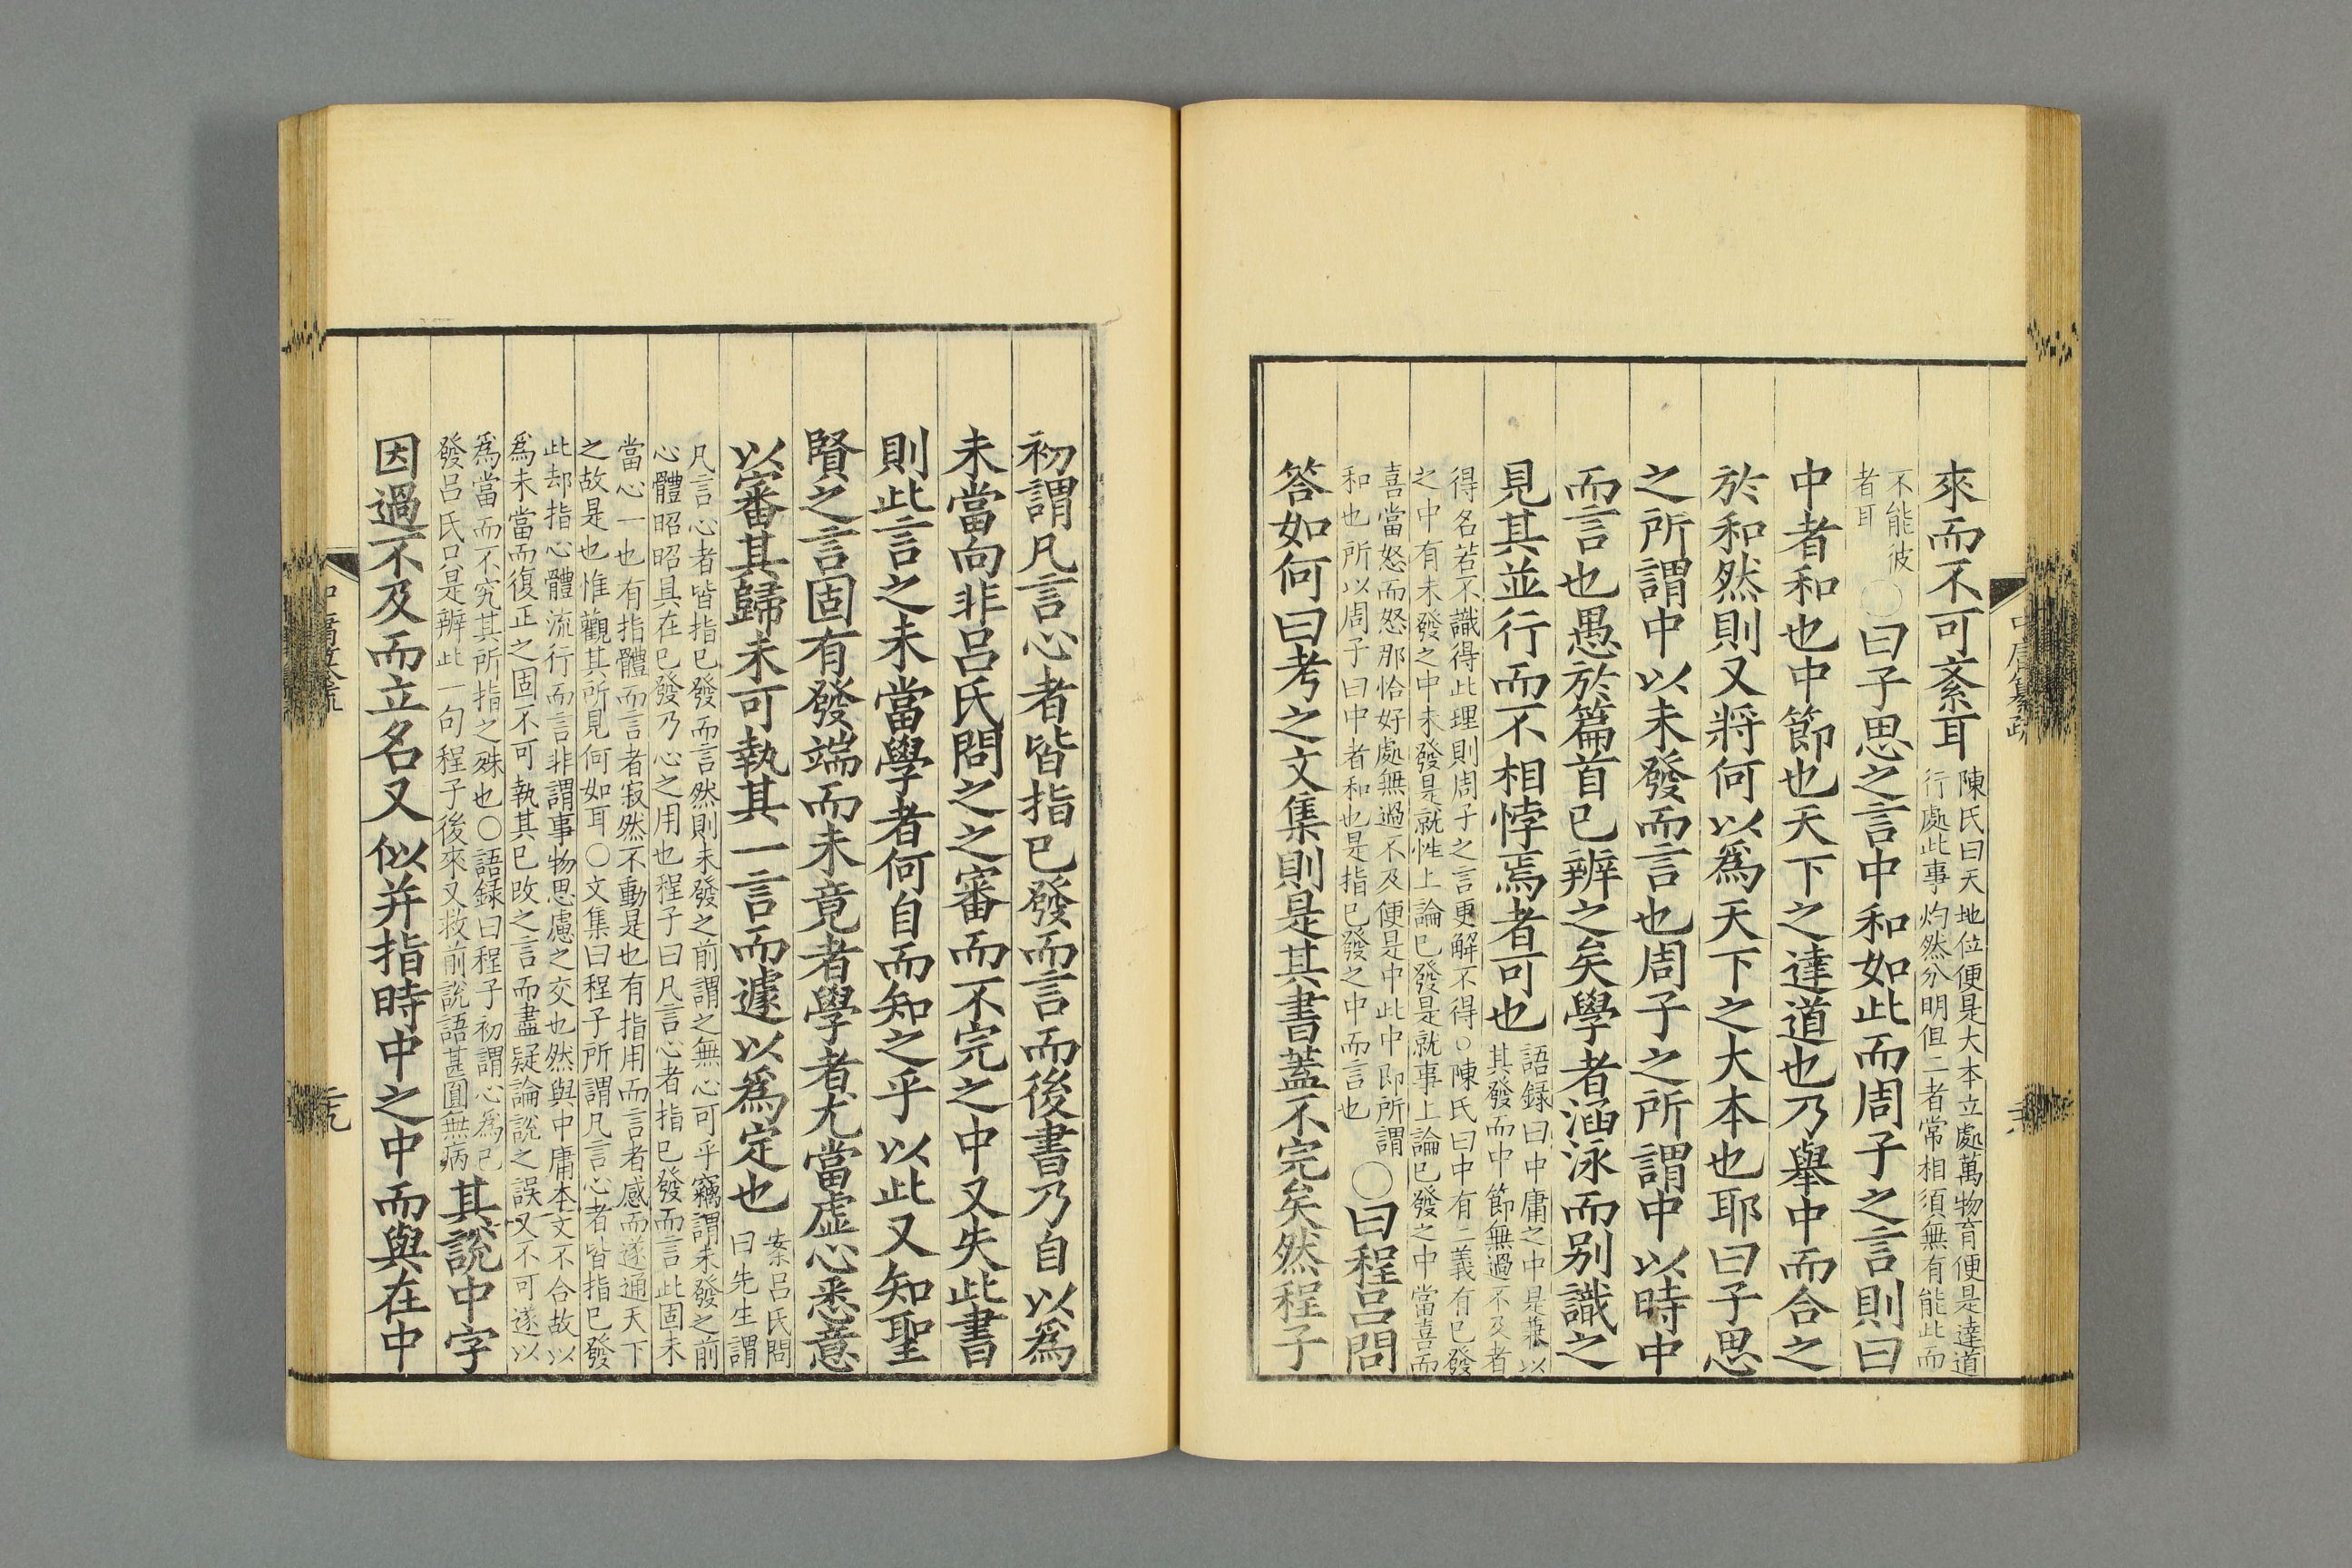 中庸纂疏
來而不可紊耳
陳氏曰天地位便是大本立處萬物育便是達道
行處此事灼然分明但二者常相須無有能此而
不能彼
者耳
○曰子思之言中和如此而周子之言則曰
中者和也中節也天下之達道也乃舉中而合之
於和然則又將何以爲天下之大本也耶曰子思
之所謂中以未發而言也周子之所謂中以時中
而言也愚於篇首已辨之矣學者涵泳而别識之
見其並行而不相悖焉者可也
語録曰中庸之中是兼以
其發而中節無過不及者
得名若不識得此理則周子之言更解不得○陳氏曰中有二義有已發
之中有未發之中未發是就性上論已發是就事上論已發之中當喜而
喜當怒而怒那恰好處無過不及便是中此中即所謂
和也所以周子曰中者和也是指已發之中而言也
○曰程呂問
答如何曰考之文集則是其書蓋不完矣然程子
初謂凡言心者皆指已發而言而後書乃自以爲
未當向非呂氏問之之審而不完之中又失此書
則此言之未當學者何自而知之乎以此又知聖
賢之言固有發端而未竟者學者尤當虛心悉意
以審其歸未可執其一言而遽以爲定也
案呂氏問
曰先生謂
凡言心者皆指已發而言然則未發之前謂之無心可乎竊謂未發之前
心體昭昭具在已發乃心之用也程子曰凡言心者指已發而言此固未
當心一也有指體而言者寂然不動是也有指用而言者感而遂通天下
之故是也惟觀其所見何如耳○文集曰程子所謂凡言心者皆指已發
此却指心體流行而言非謂事物思慮之交也然與中庸本文不合故以
爲未當而復正之固不可執其已改之言而盡疑論說之誤又不可遂以
爲當而不究其所指之殊也○語録曰程子初謂心爲已
發呂氏只是辨此一句程子後來又救前說語甚圓無病
其說中字
因過不及而立名又似并指時中之中而與在中
中庸纂疏
二十九